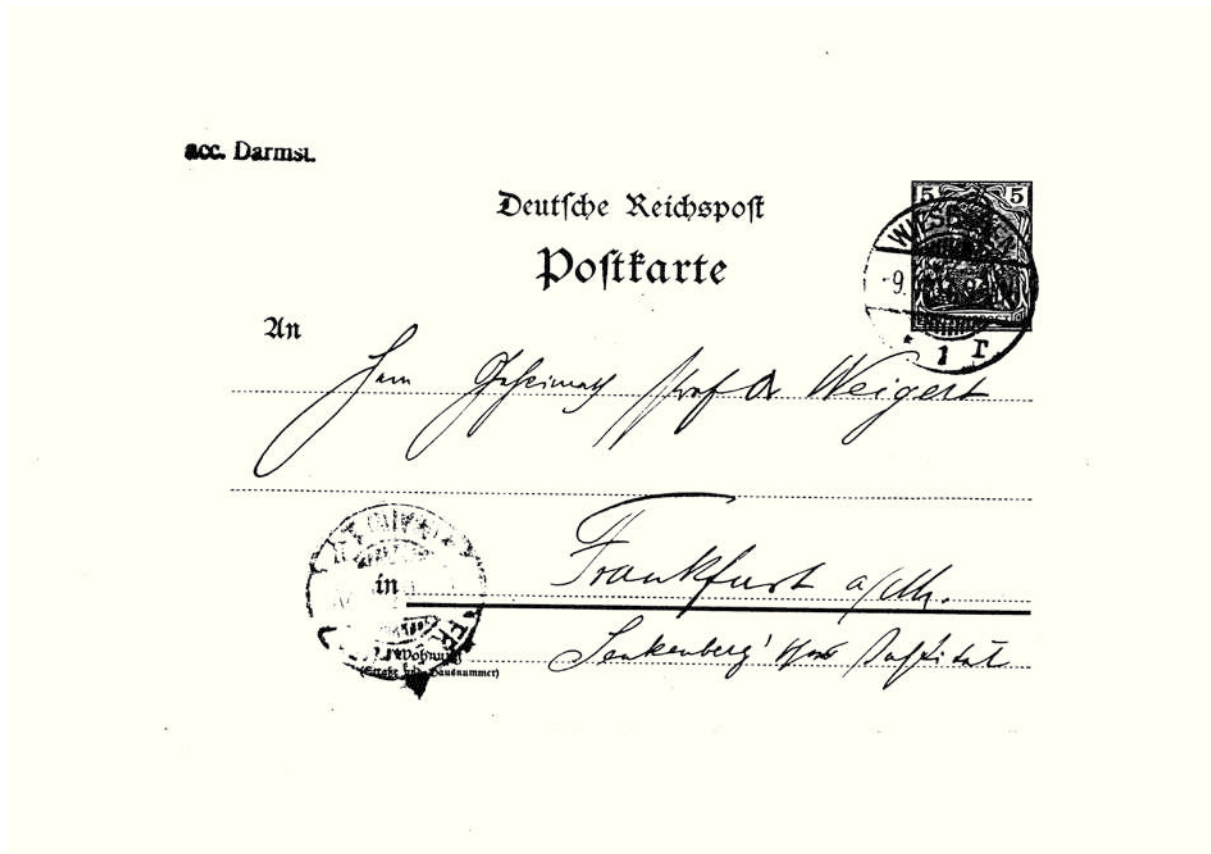 acc. Darmst.
Deutsche Reichspost
Postkarte
5 5
WIESBADEN
-9.
* 1 r
An
Herrn Geheimrath Prof Dr Weigert
in
Frankfurt a/M.
Wohnung
(Straße und Hausnummer)
Senkenberg'sches Institut